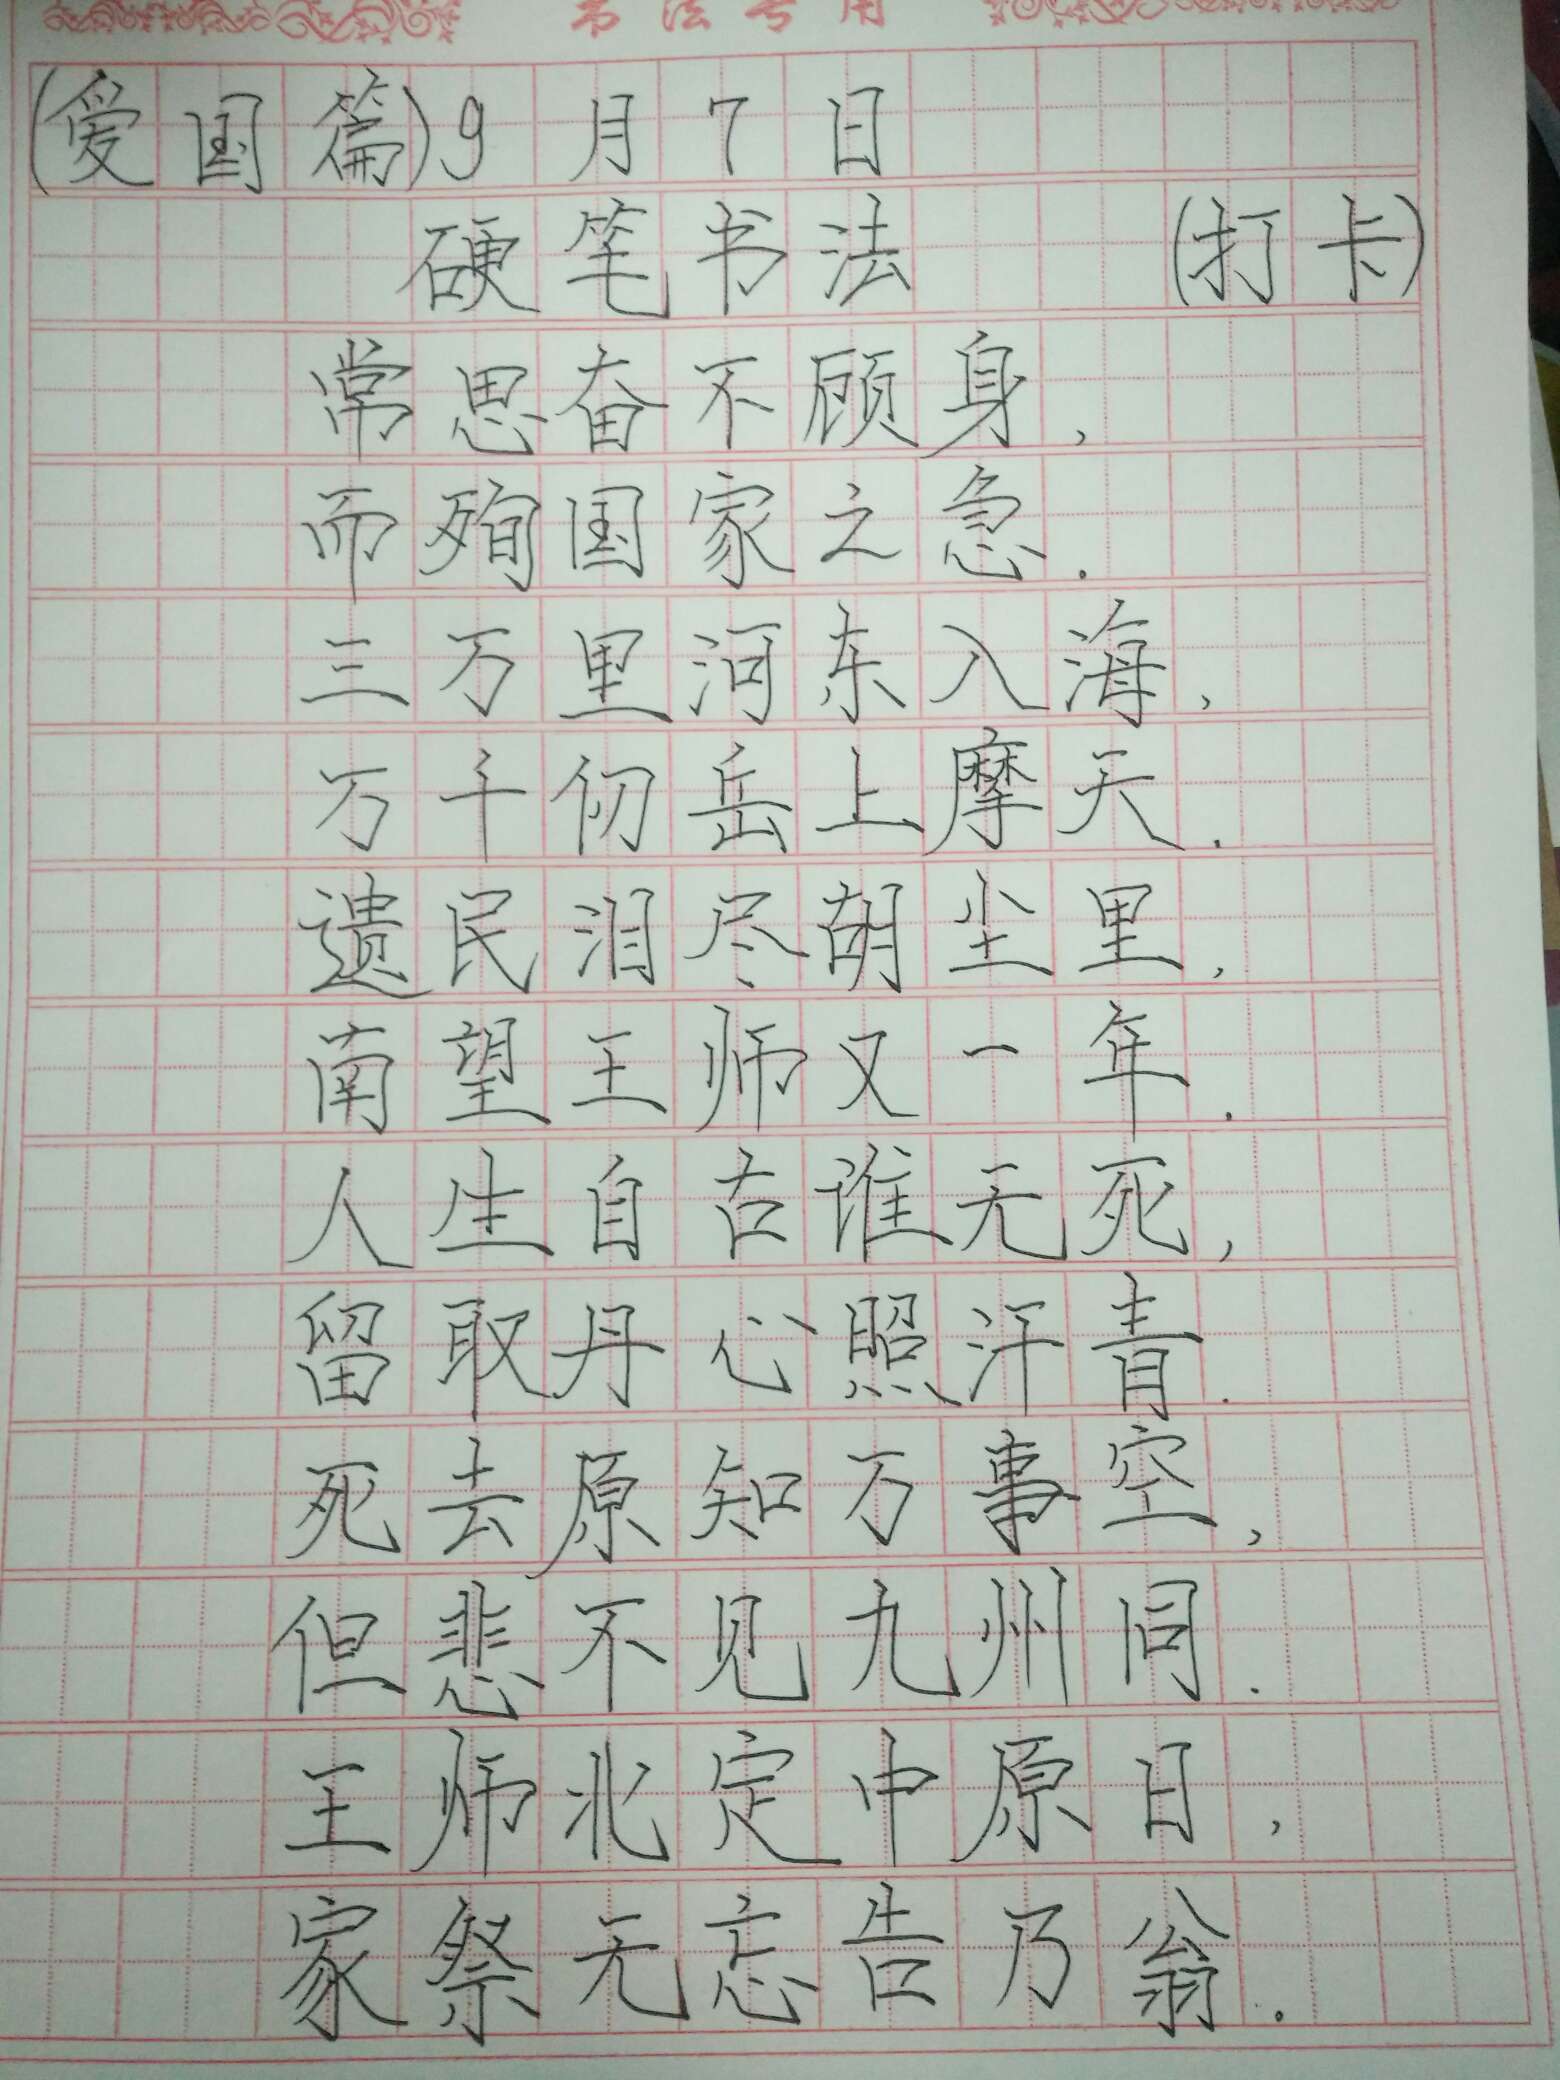 书法专用
(爱国篇)9月7日
硬笔书法 (打卡)
常思奋不顾身,
而殉国家之急.
三万里河东入海,
万千仞岳上摩天.
遗民泪尽胡尘里,
南望王师又一年.
人生自古谁无死,
留取丹心照汗青.
死去原知万事空,
但悲不见九州同.
王师北定中原日,
家祭无忘告乃翁.